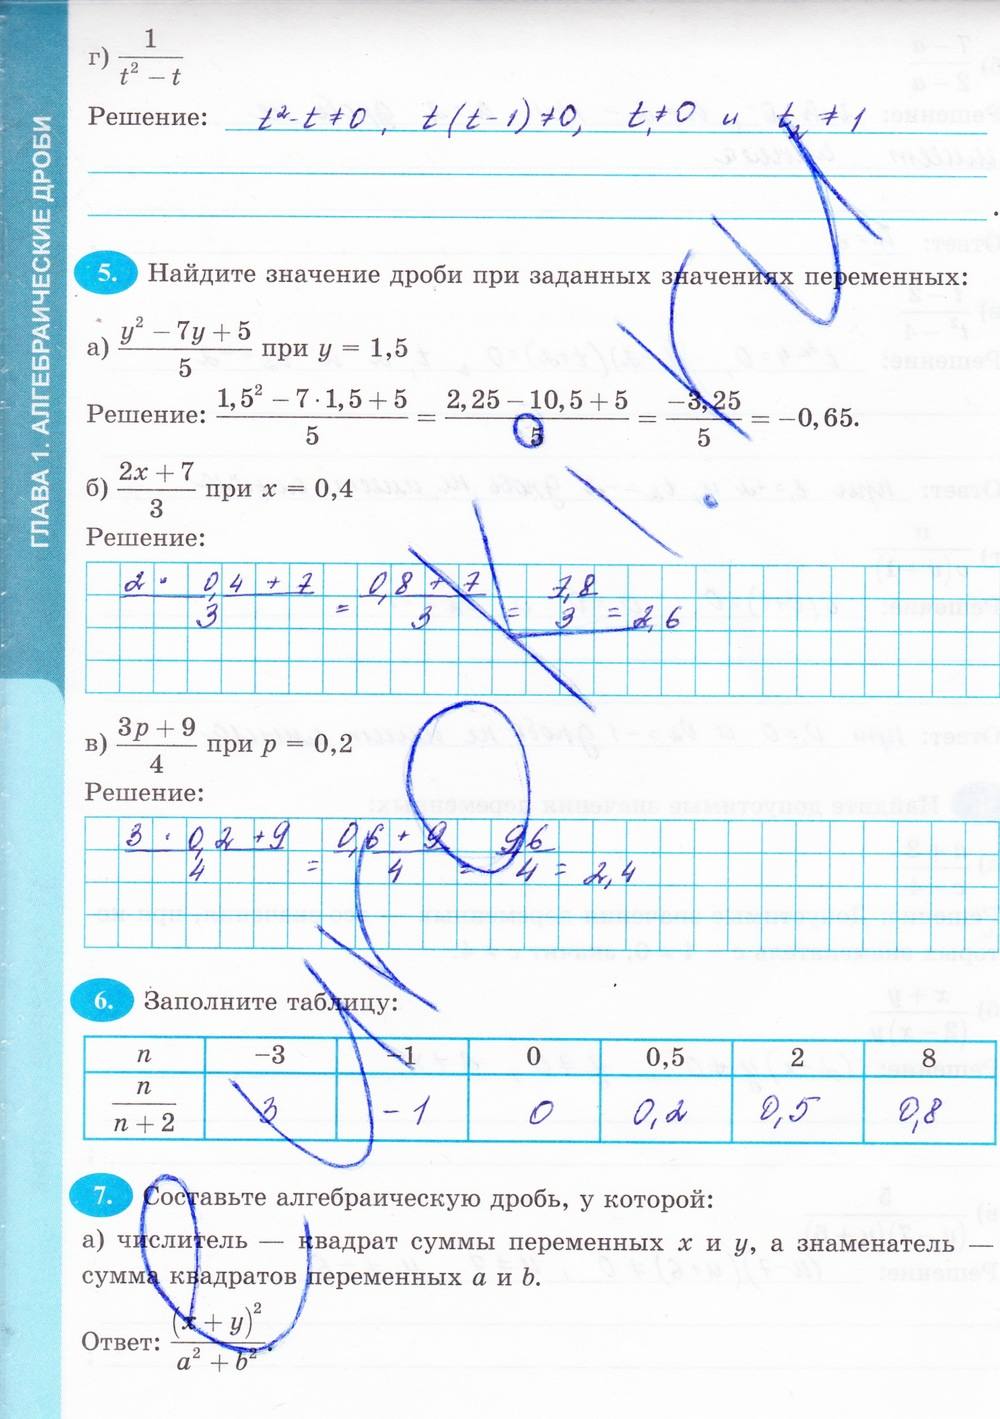 ГЛАВА 1. АЛГЕБРАИЧЕСКИЕ ДРОБИ
г) 1/(t² − t)
Решение: t² - t ≠ 0, t(t - 1) ≠ 0, t₁ ≠ 0 и t₂ ≠ 1
.
5. Найдите значение дроби при заданных значениях переменных:
а) (y² − 7y + 5)/5 при y = 1,5
Решение: (1,5² − 7·1,5 + 5)/5 = (2,25 − 10,5 + 5)/5 = −3,25/5 = −0,65.
б) (2x + 7)/3 при x = 0,4
Решение:
(2 · 0,4 + 7)/3 = (0,8 + 7)/3 = 7,8/3 = 2,6
в) (3p + 9)/4 при p = 0,2
Решение:
(3 · 0,2 + 9)/4 = (0,6 + 9)/4 = 9,6/4 = 2,4
6. Заполните таблицу:
n −3 −1 0 0,5 2 8
n/(n + 2) 3 -1 0 0,2 0,5 0,8
7. Составьте алгебраическую дробь, у которой:
а) числитель — квадрат суммы переменных x и y, а знаменатель —
сумма квадратов переменных a и b.
Ответ: (x + y)²/(a² + b²).